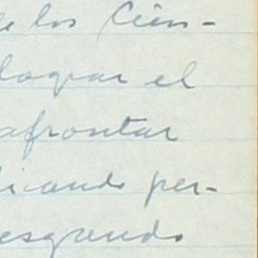 de los Cien-
lograr el
afrontar
icando per-
esgando